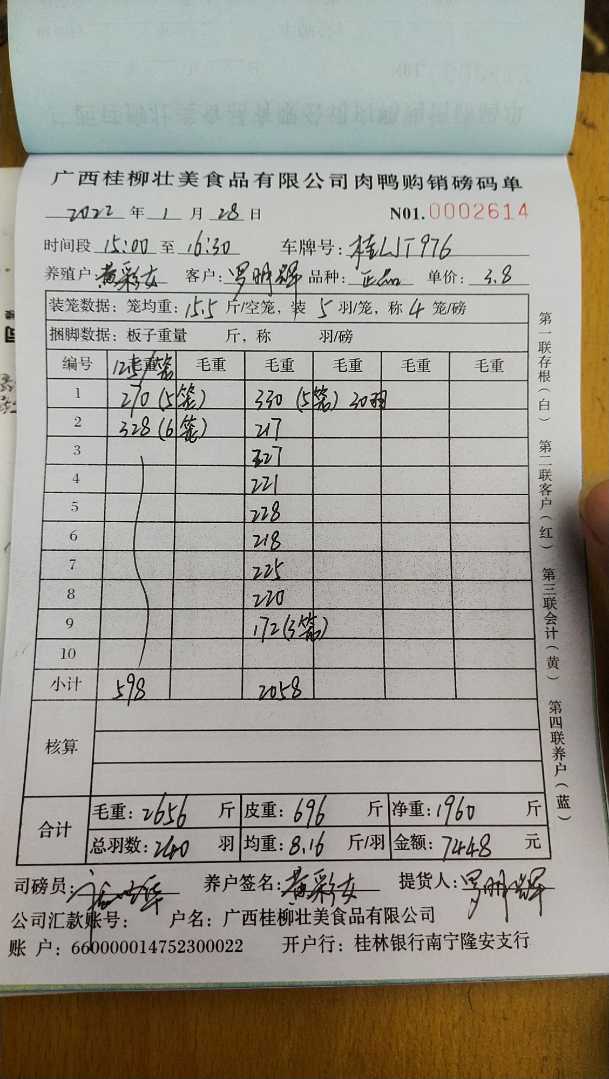 广西桂柳壮美食品有限公司肉鸭购销磅码单
2022 年 1 月 28 日 N01.0002614
时间段 15:00 至 16:30 车牌号: 桂WJT976
养殖户: 黄彩女 客户: 罗明辉 品种: 正品 单价: 3.8
装笼数据: 笼均重: 15.5 斤/空笼, 装 5 羽/笼, 称 4 笼/磅
捆脚数据: 板子重量 斤, 称 羽/磅
编号 毛重 毛重 毛重 毛重 毛重 毛重
12.5/笼
1 270 (5笼) 330 (5笼) 30羽
2 328 (6笼) 217
3 227
4 221
5 228
6 218
7 225
8 220
9 172 (3笼)
10
小计 598 2058
核算
合计
毛重: 2656 斤 皮重: 696 斤 净重: 1960 斤
总羽数: 240 羽 均重: 8.16 斤/羽 金额: 7448 元
司磅员: 养户签名: 黄彩女 提货人: 罗明辉
公司汇款账号: 户名: 广西桂柳壮美食品有限公司
账 户: 660000014752300022 开户行: 桂林银行南宁隆安支行
第一联存根(白) 第二联客户(红) 第三联会计(黄) 第四联养户(蓝)